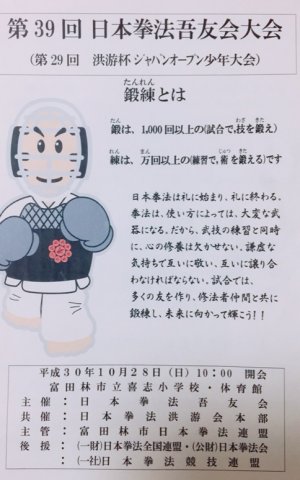 第39回 日本拳法吾友会大会
(第29回 洪游杯 ジャパンオープン少年大会)
たんれん
鍛練とは
たん わざ きた
鍛は、1,000回以上の(試合で、技を鍛え)
れん じゅつ きた
練は、万回以上の(練習で、術を鍛える)です
日本拳法は礼に始まり、礼に終わる。
拳法は、使い方によっては、大変な武
器になる。だから、武技の練習と同時
に、心の修養は欠かせない。謙虚な
気持ちで互いに敬い、互いに譲り合
わなければならない。試合では、
多くの友を作り、修法者仲間と共に
鍛練し、未来に向かって輝こう!!
平成30年10月28日(日)10:00 開会
富田林市立喜志小学校・体育館
主催:日本拳法吾友会
共催:日本拳法洪游会本部
主管:富田林市日本拳法連盟
後援:(一財)日本拳法全国連盟・(公財)日本拳法会
:(一社)日本拳法競技連盟